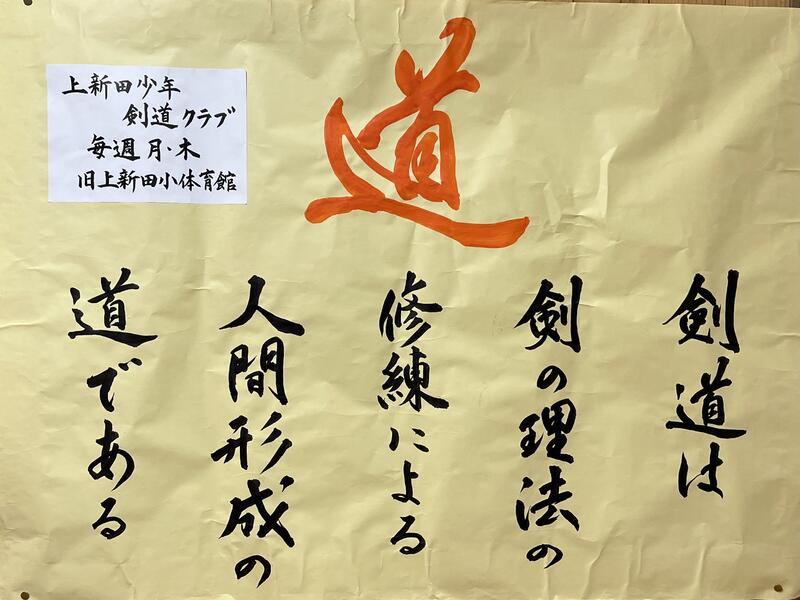 道
上新田少年
剣道クラブ
毎週月・木
旧上新田小体育館
剣道は
剣の理法の
修練による
人間形成の
道である